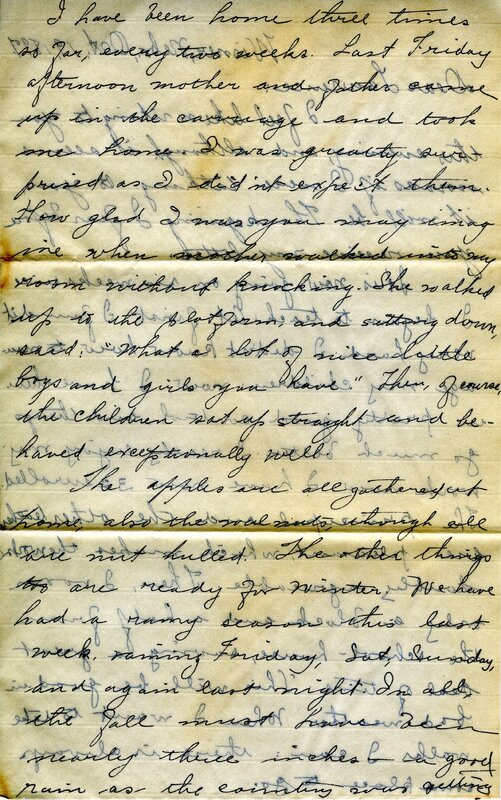 I have been home three times
so far, every two weeks. Last Friday
afternoon mother and father came
up in the carriage and took
me home. I was greatly sur-
prised as I didn't expect them.
How glad I was you may imag
ine when mother walked into my
room without knocking. She walked
up to the platform, and sitting down,
said: "What a lot of nice little
boys and girls you have." Then, of course,
the children sat up straight and be-
haved exceptionally well.
The apples are all gathered at
home, also the walnuts, though all
are not hulled. The other things
too are ready for winter. We have
had a rainy season this last
week, raining Friday, Sat, Sunday,
and again last night. In all,
the fall must have been
nearly three inches - a good
rain as the country was getting